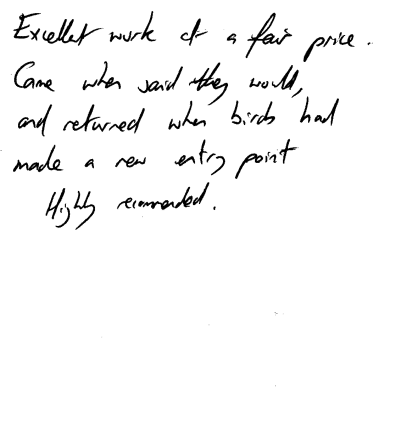 Excellent work at a fair price.
Came when said they would,
and returned when birds had
made a new entry point
Highly recommended.